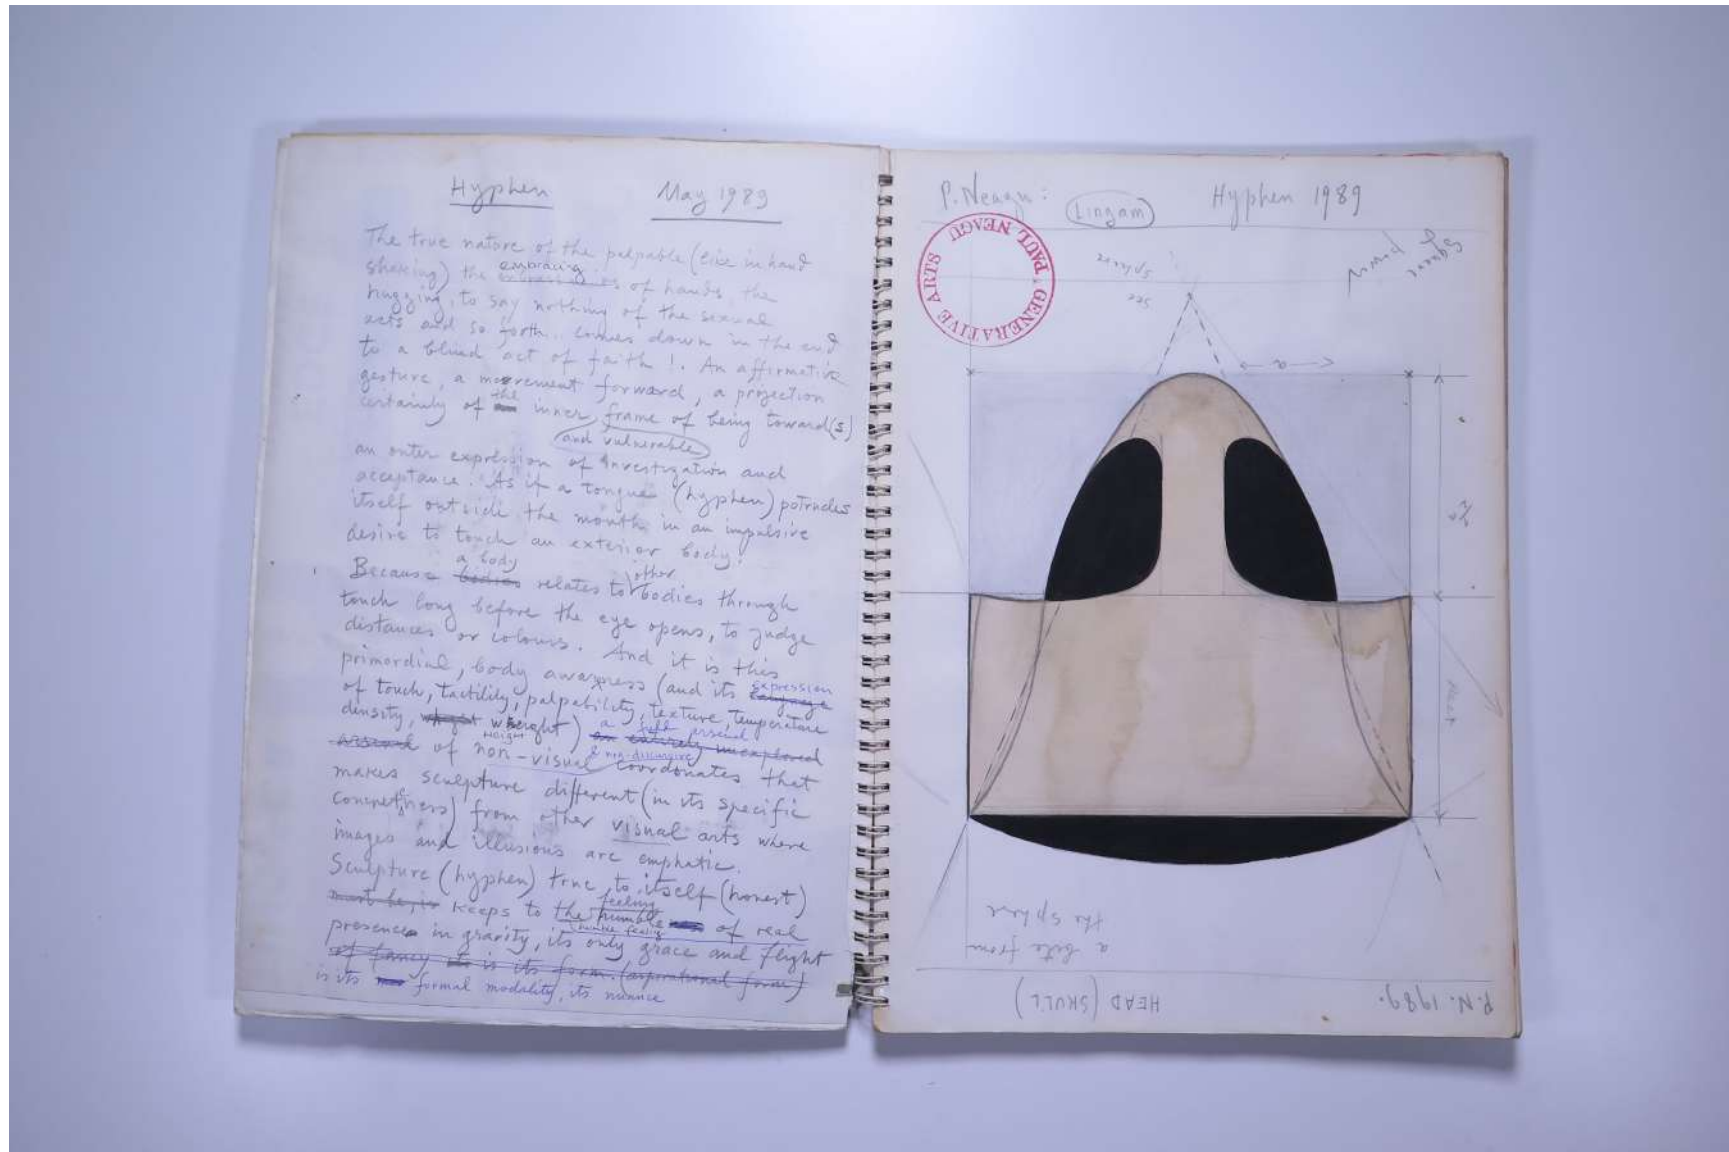 Hyphen May 1989
The true nature of the palpable (like in hand
shaking) the embracing of hands, the
hugging, to say nothing of the sexual
acts and so forth.. comes down in the end
to a blind act of faith!. An affirmative
gesture, a movement forward, a projection
certainly of the inner frame of being toward(s)
(and vulnerable)
an outer expression of investigation and
acceptance. As if a tongue (hyphen) potrudes
itself outside the mouth in an impulsive
desire to touch an exterior body.
Because bodies a body relates to other bodies through
touch long before the eye opens, to judge
distances or colours. And it is this
primordial, body awarness (and its language expression
of touch, tactility, palpability, texture, temperature
density, weight weight) an entirely unexplored a full arsenal
arsenal of non-visual & non-discursive coordonates that
makes sculpture different (in its specific
concretness) from other visual arts where
images and illusions are emphatic.
Sculpture (hyphen) true, to itself (honest)
must be, is keeps to the humble feeling of real
(humble feeling)
presence in gravity, its only grace and flight
of fancy is its form. (aspirational form)
is its formal modality, its nuance
P. Neagu: Lingam Hyphen 1989
PAUL NEAGU GENERATIVE ARTS
Square
see
sphere
a
a bite from
the sphere
HEAD (SKULL)
P.N. 1989.